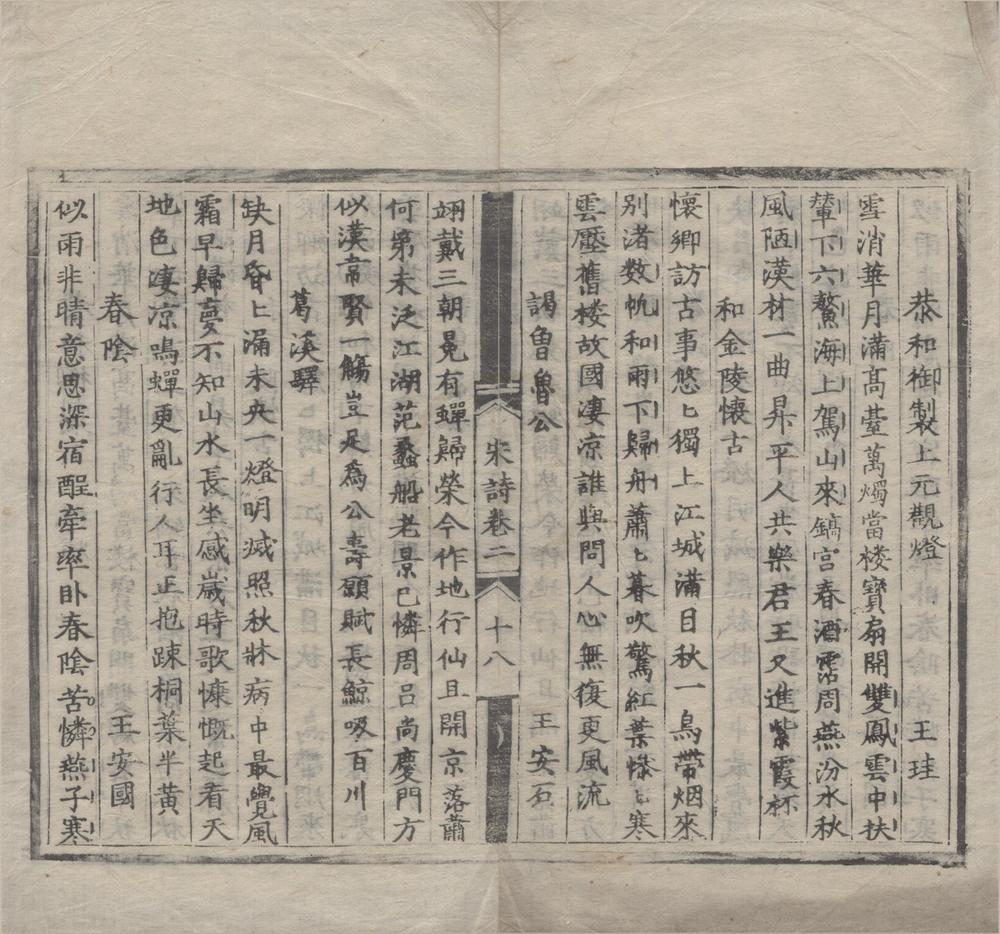 恭和御製上元觀燈 王珪
雪消華月滿高臺萬燭當楼寶扇開雙鳳雲中扶
輦下六鰲海上駕山來鎬宮春酒霑周燕汾水秋
風陋漢材一曲昇平人共樂君王又進紫霞杯
和金陵懷古
懷卿訪古事悠〻獨上江城滿目秋一鳥帶烟來
別渚数帆和雨下歸舟蕭〻暮吹驚紅葉慘〻寒
雲壓舊楼故國凄凉誰與問人心無復更風流
謁曾魯公 王安石
翊戴三朝冕有蟬歸榮今作地行仙且開京落蕭
何第未泛江湖范蠡船老景已憐周呂尚慶門方
似漢韋賢一觴豈足爲公壽願賦長鯨吸百川
葛溪驛
缺月昏〻漏未央一燈明滅照秋牀病中最覺風
霜早歸夢不知山水長坐感歲時歌慷慨起看天
地色凄凉鳴蟬更亂行人耳正抱踈桐葉半黄
春陰 王安國
似雨非晴意思深宿酲牽率卧春陰苦憐燕子寒
宋詩卷二 十八